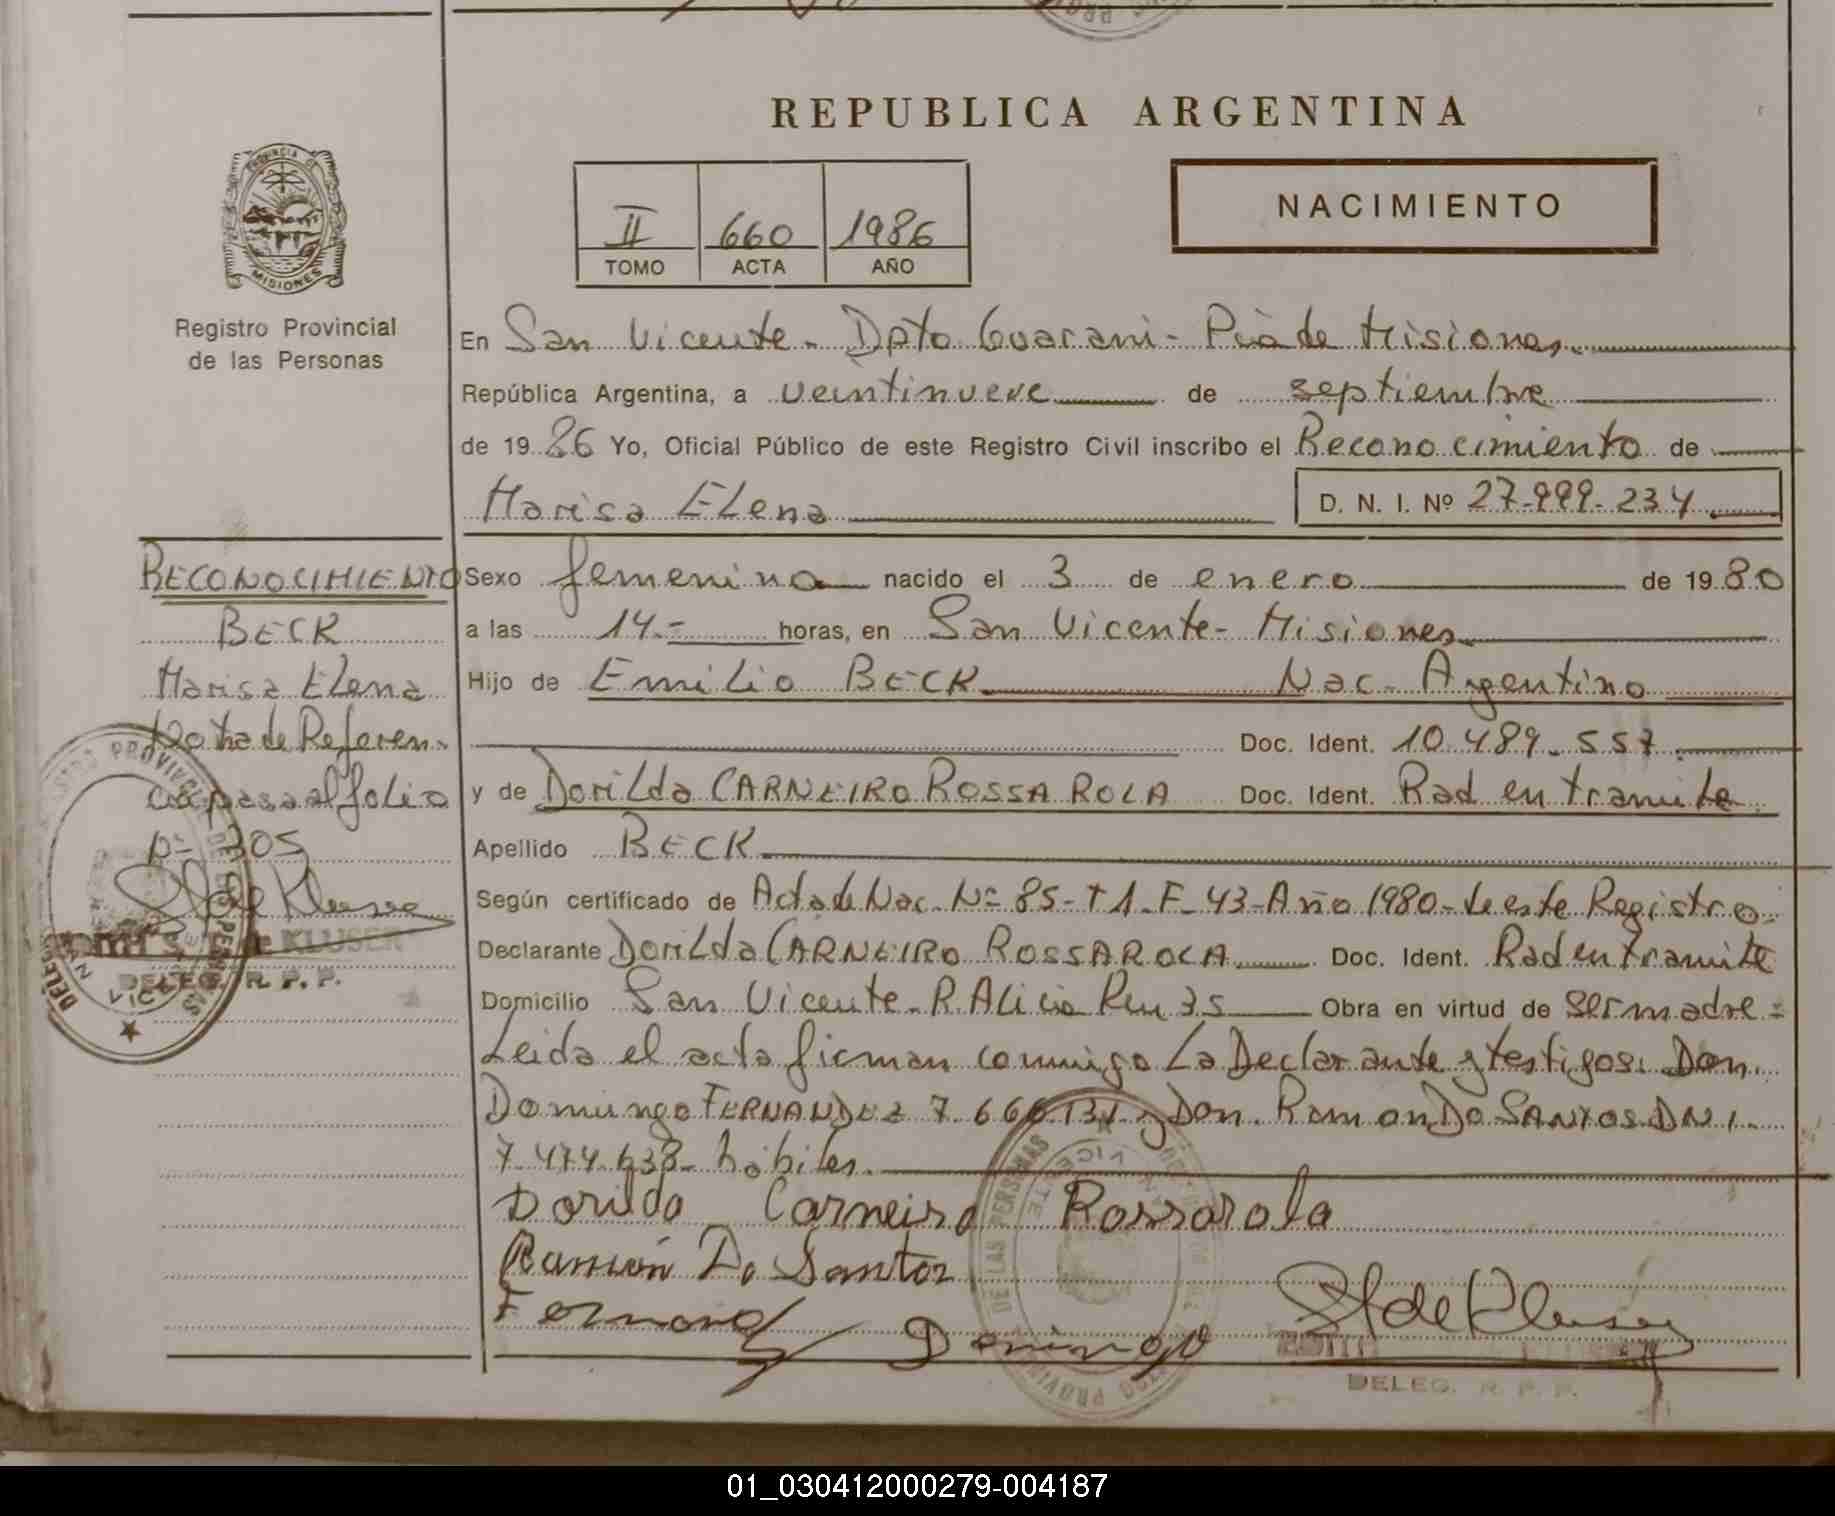 REPUBLICA ARGENTINA
PROVINCIA DE
MISIONES
Registro Provincial
de las Personas
II 660 1986
TOMO ACTA AÑO
NACIMIENTO
En San Vicente - Dpto Guarani - Pcia de Misiones.
República Argentina, a veintinueve de septiembre
de 19 86 Yo, Oficial Público de este Registro Civil inscribo el Reconocimiento de
Marisa Elena D. N. I. Nº 27-999-234
RECONOCIMIENTO
BECK
Marisa Elena
Nota de Referen-
cia pasa al folio
nº 205
KLUSER
DELEG. R. P. P.
Sexo femenina nacido el 3 de enero de 19 80
a las 14.- horas, en San Vicente - Misiones
Hijo de Emilio BECK Nac - Argentino
Doc. Ident. 10.489.557
y de Dorilda CARNEIRO ROSSAROLA Doc. Ident. Rad en tramite
Apellido BECK
Según certificado de Acta de Nac. Nº 85 - T 1 - F - 43 - Año 1980 - de este Registro
Declarante Dorilda CARNEIRO ROSSAROLA Doc. Ident. Rad en tramite
Domicilio San Vicente - R. Alicia Km 35 Obra en virtud de ser madre =
Leida el acta firman conmigo La Declarante y testigos: Don
Domingo FERNANDEZ 7.666.131 y Don Ramon Do SANTOS DNI.
7.474.638 - hábiles.
Dorilda Carneiro Rossarola
Ramón Do Santos
Fernandez Domingo
DELEG. R. P. P.
01_030412000279-004187